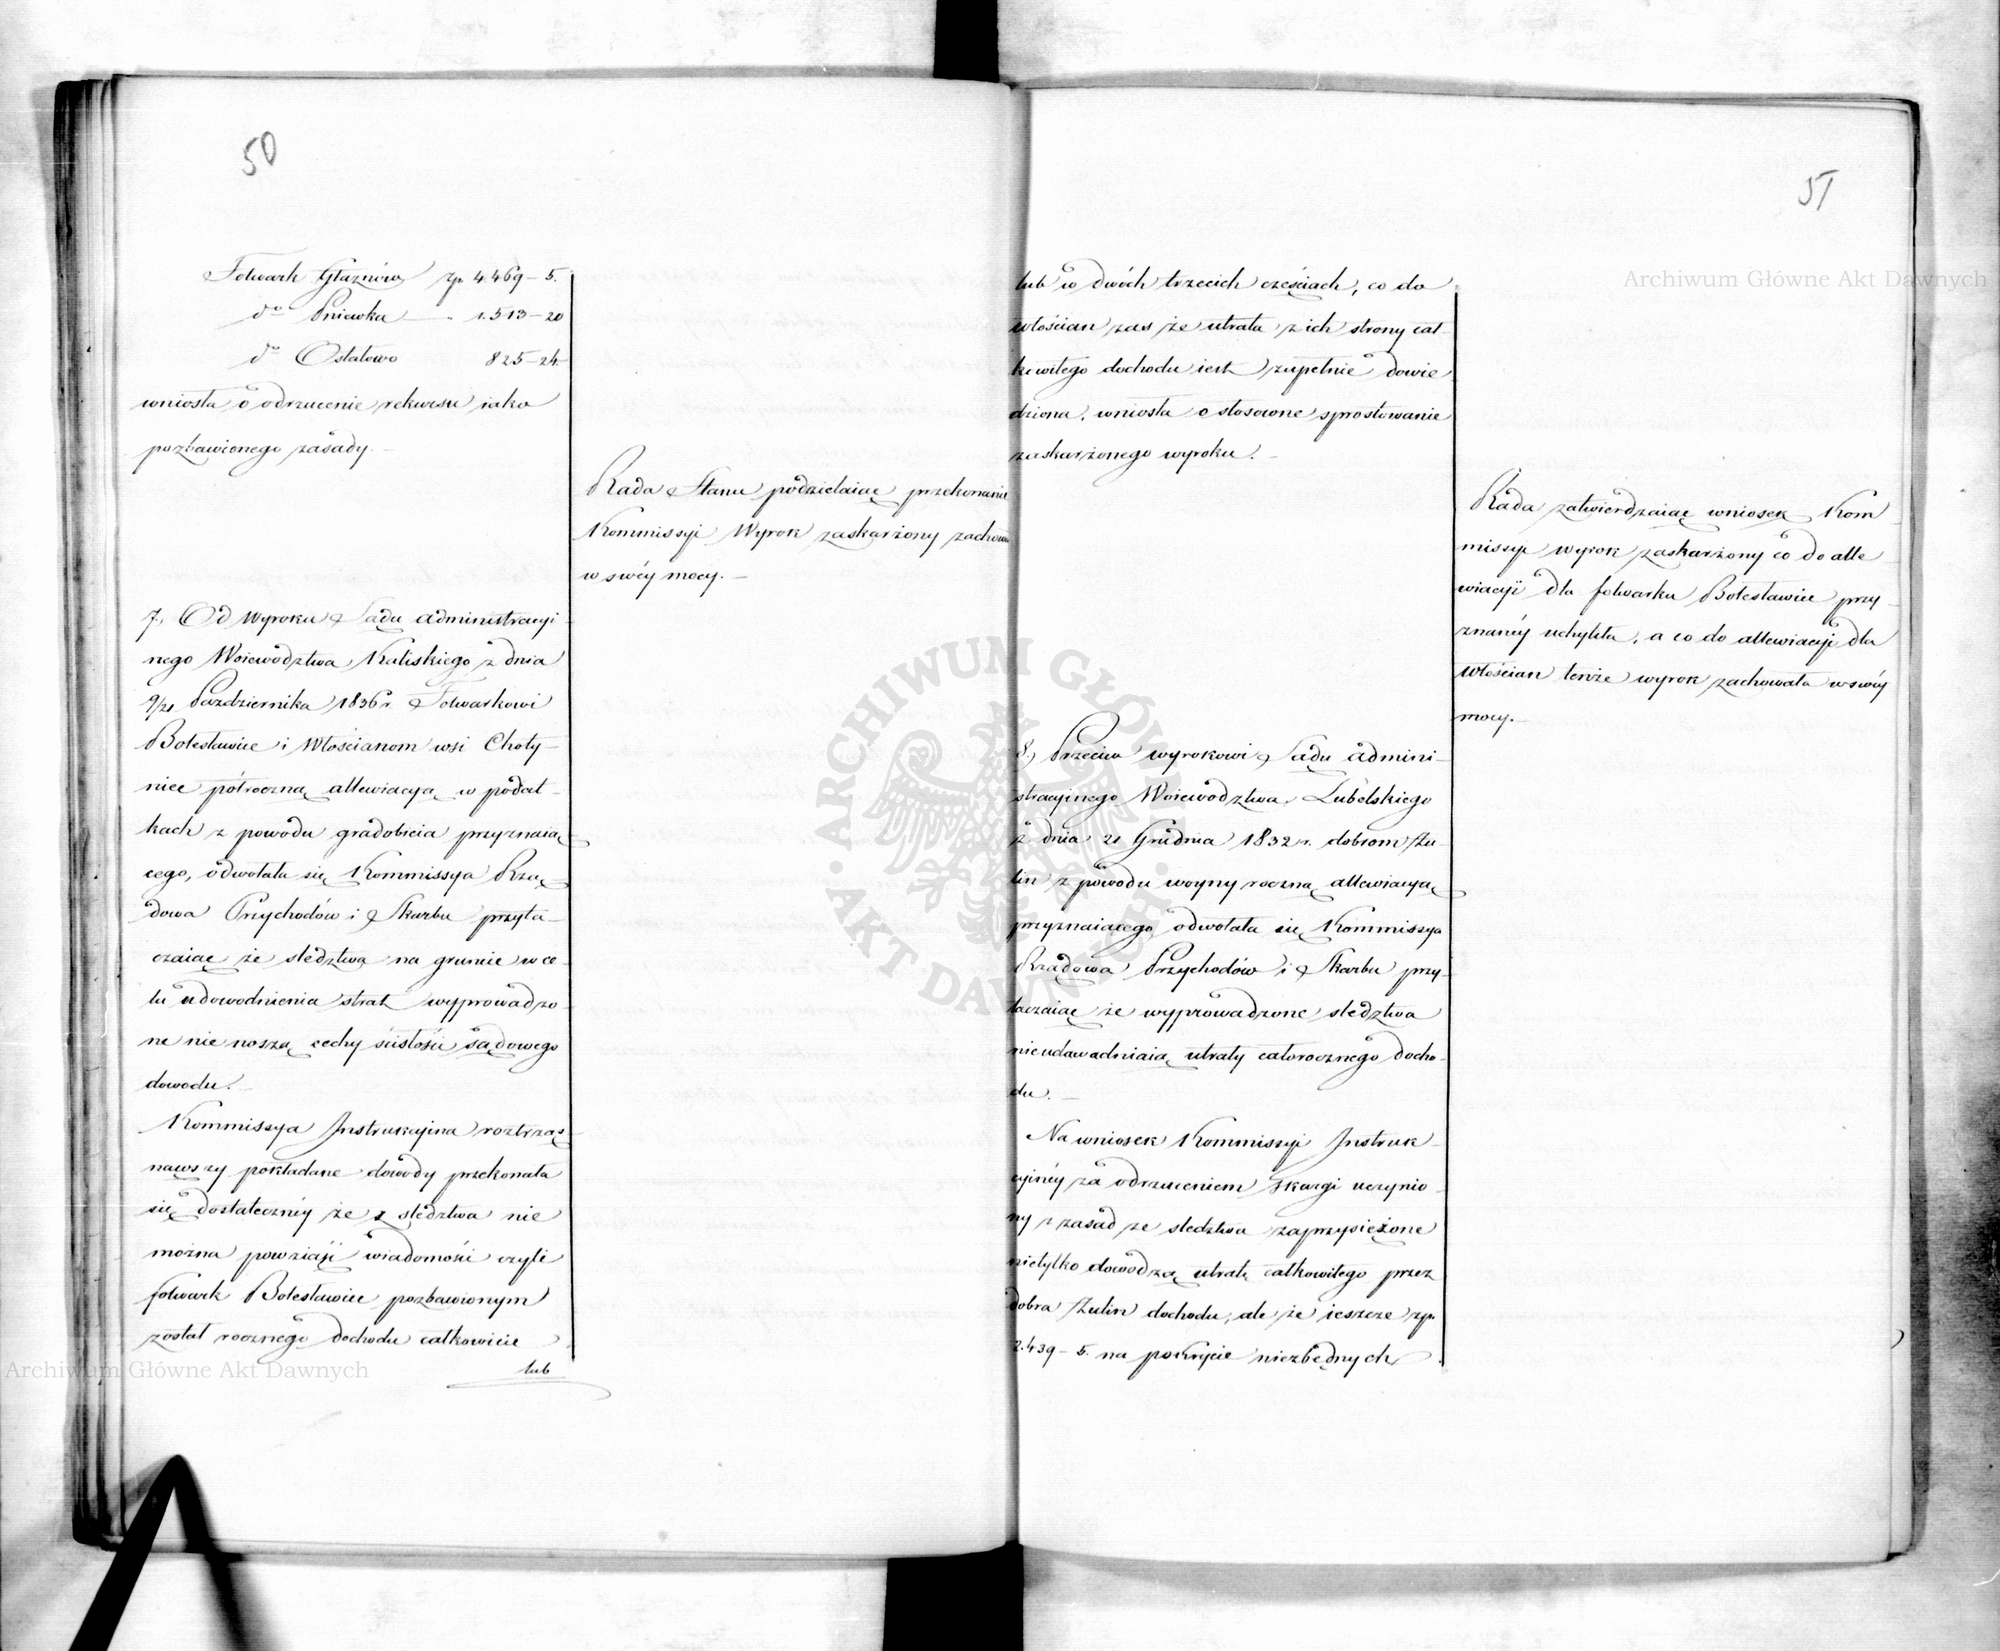 50
Folwark Głaznów zp. 4.469 – 5.
do Pniewka — " 1.513 – 20
do Ostałowo 825 – 24
wniosła o odrzucenie rekursu iako
pozbawionego zasady. —
Rada Stanu podzielaiąc przekonanie
Kommissyi Wyrok zaskarżony zachowa
w swéy mocy. —
7., Od Wyroku Sądu administracyi
nego Woiewództwa Kaliskiego z dnia
9/21 Października 1836 r. Folwarkowi
Bolesławiec i Włościanom wsi Choty-
nice półroczną allewiacyą w podat-
kach z powodu gradobicia przyznaią
cego, odwołała się Kommissya Rzą-
dowa Przychodów i Skarbu przyta-
czaiąc że śledztwa na gruncie w ce-
lu udowodnienia strat wyprowadzo-
ne nie noszą cechy ścisłości sądowego
dowodu. —
Kommissya Instrukcyina roztrząs
nąwszy pokładane dowody przekonała
się dostateczniéy że z śledztwa nie
można powziąść wiadomości czyli
folwark Bolesławiec pozbawionym
został rocznego dochodu całkowicie
lub
51
lub w dwóch trzecich częściach, co do
włościan zas że utrata z ich strony cał-
kowitego dochodu iest zupełnie dowie
dziona, wniosła o stosowne sprostowanie
zaskarżonego wyroku. —
Rada zatwierdzaiąc wniosek Kom
missyi wyrok zaskarżony co do alle
wiacyi dla folwarku Bolesławiec przy-
znanéy uchyliła, a co do allewiacyi dla
Włościan tenże wyrok zachowała w swéy
mocy. —
8., Przeciw wyrokowi Sądu admini-
stracyinego Woiewództwa Lubelskiego
z dnia 21 Grudnia 1832 r. dobrom Żu-
lin z powodu woyny roczną allewiacyą
przyznaiącego odwołała się Kommissya
Rządowa Przychodów i Skarbu przy-
taczaiąc że wyprowadzone śledztwa
nieudawadniaią utraty całorocznego docho-
du. —
Na wniosek Kommissyi Instruk-
cyinéy za odrzuceniem skargi uczynio-
ny z zasad że śledztwa zaprzysiężone
nietylko dowodzą utratę całkowitego przez
dobra Żulin dochodu, ale że ieszcze zp.
2.439 – 5. na pokrycie niezbędnych
Archiwum Główne Akt Dawnych
Archiwum Główne Akt Dawnych
ARCHIWUM GŁÓWNE AKT DAWNYCH